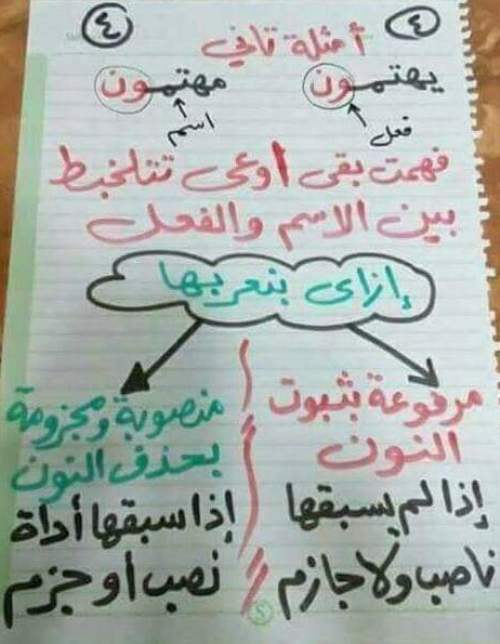 ٤ ٤
أمثلة تاني
يهتمون مهتمون
فعل اسم
فهمت بقى اوعى تتلخبط
بين الاسم والفعل
إزاى بنعربها
مرفوعة بثبوت
النون
إذا لم يسبقها
ناصب ولا جازم
منصوبة ومجزومة
بحذف النون
إذا سبقها أداة
نصب أو جزم